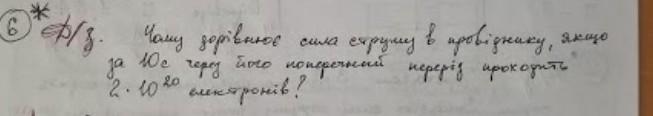 6* Д/з. Чому дорівнює сила струму в провіднику, якщо
за 10с через його поперечний переріз проходить
2 · 10²⁰ електронів?